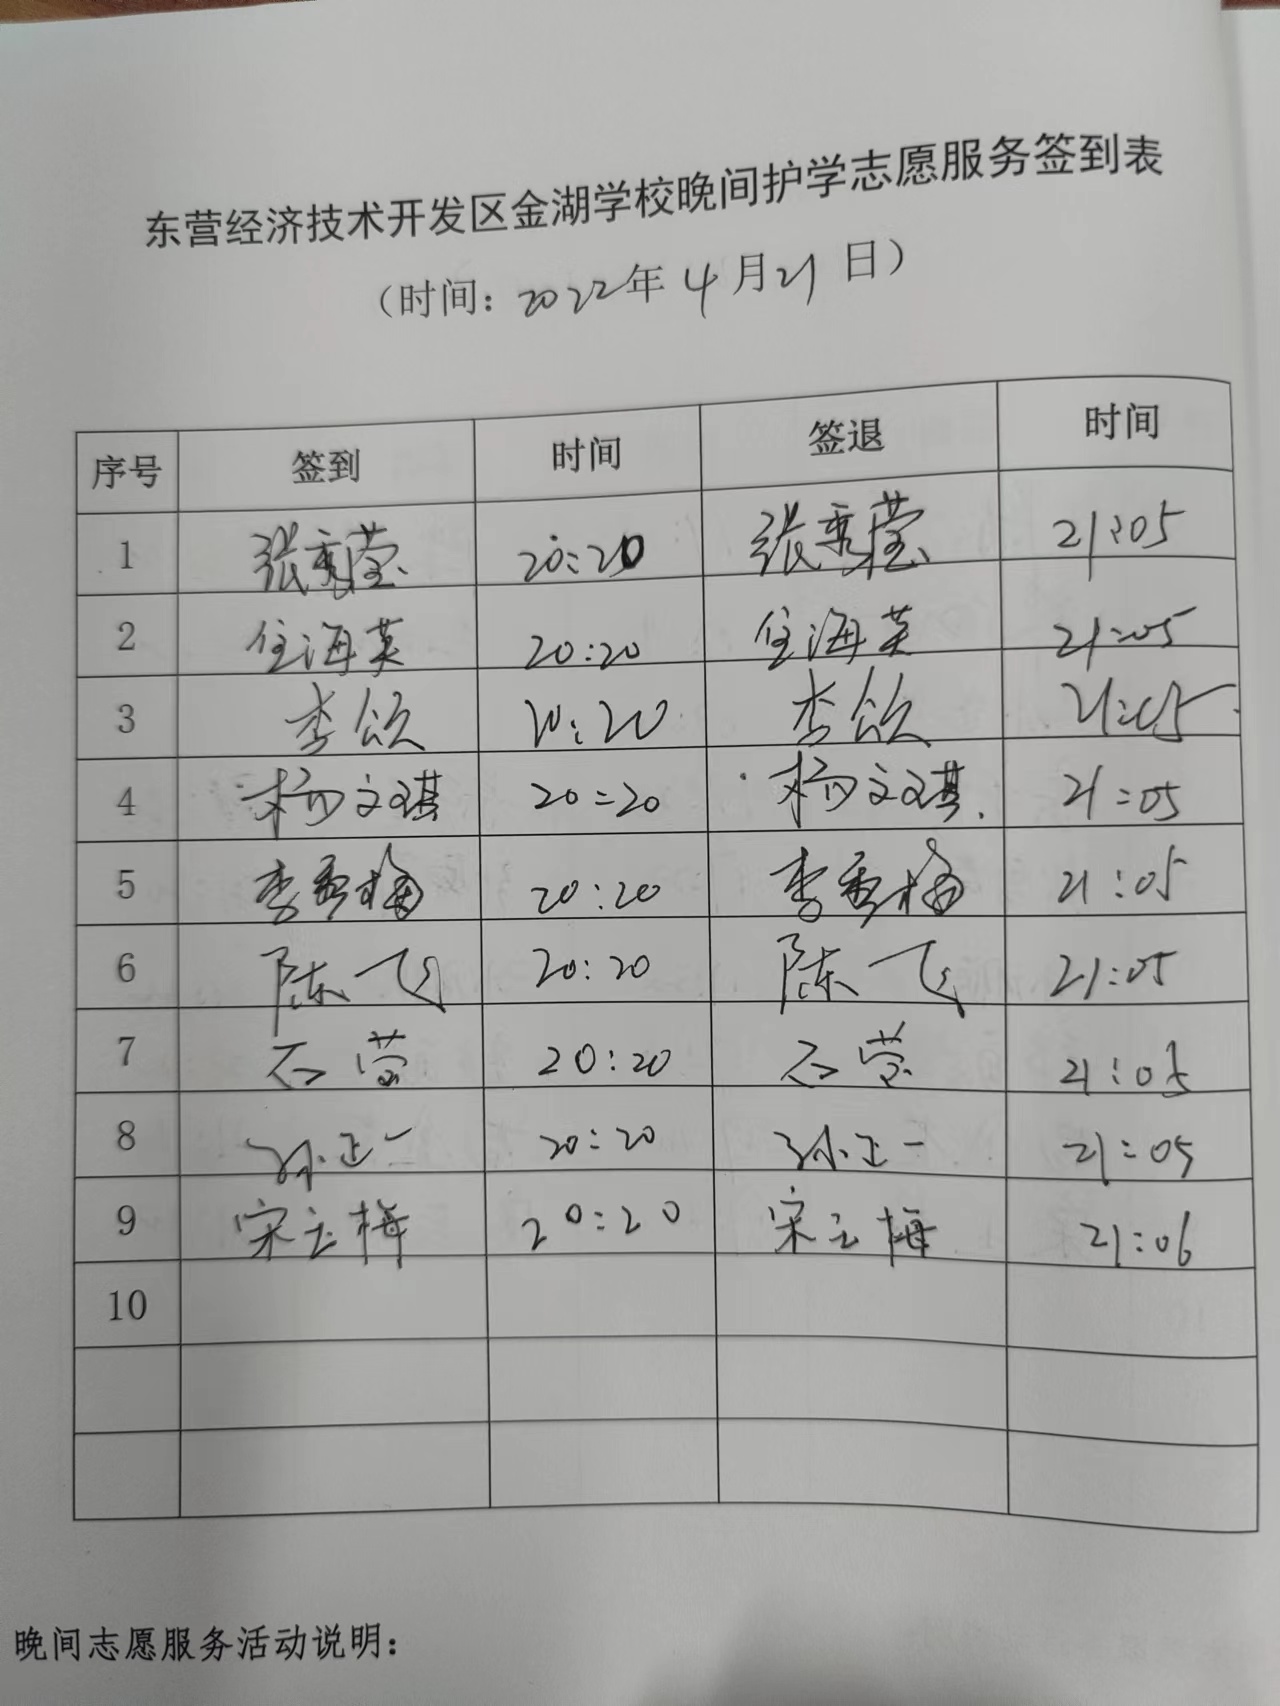 东营经济技术开发区金湖学校晚间护学志愿服务签到表
（时间：2022年 4月21日）
序号 签到 时间 签退 时间
1 张秀莹 20:20 张秀莹 21:05
2 任海英 20:20 任海英 21:05
3 李欣 20:20 李欣 21:05
4 杨文琪 20:20 杨文琪 21:05
5 李秀梅 20:20 李秀梅 21:05
6 陈飞 20:20 陈飞 21:05
7 石莹 20:20 石莹 21:05
8 孙正一 20:20 孙正一 21:05
9 宋立梅 20:20 宋立梅 21:06
10
晚间志愿服务活动说明：